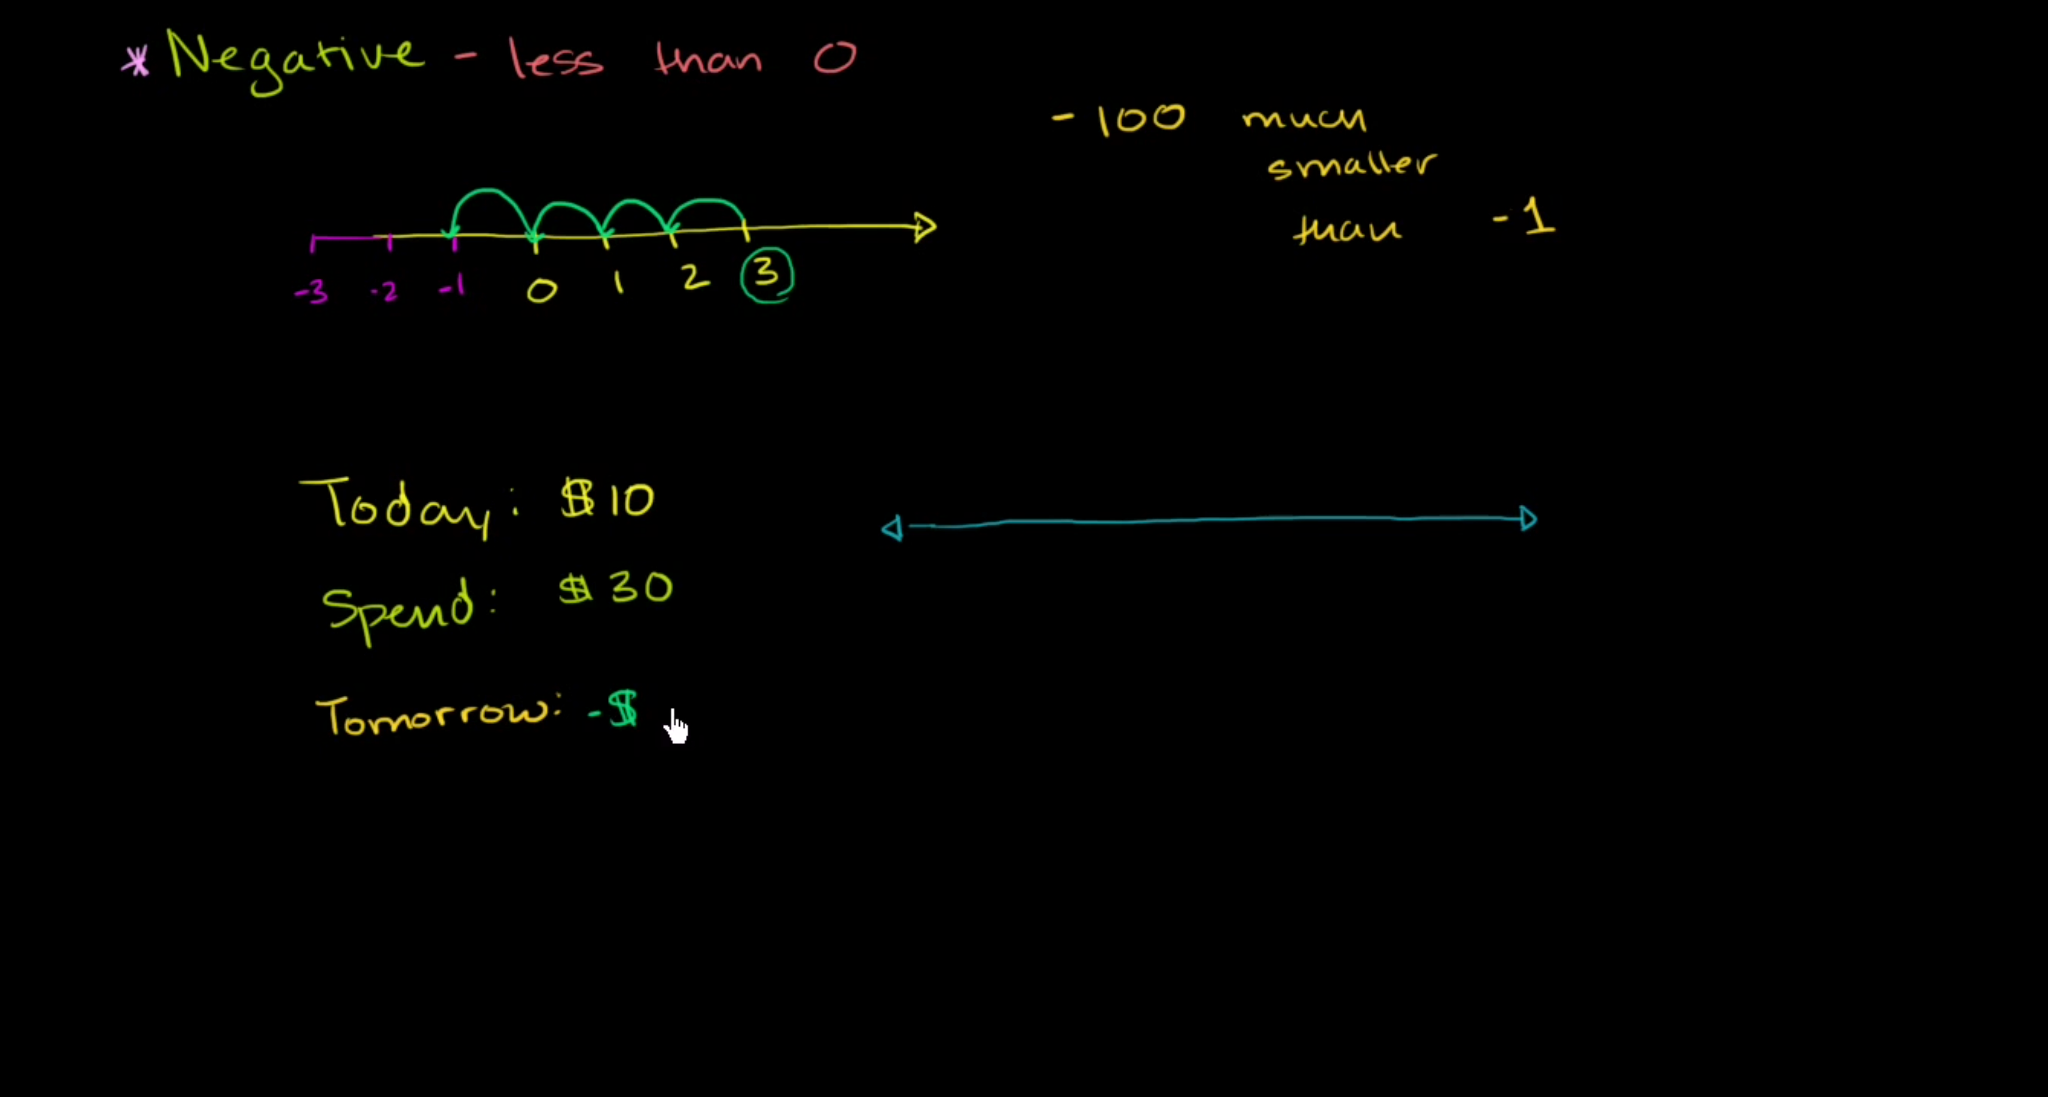 * Negative - less than 0
-100 much
smaller
than -1
-3 -2 -1 0 1 2 3
Today: $10
Spend: $30
Tomorrow: -$